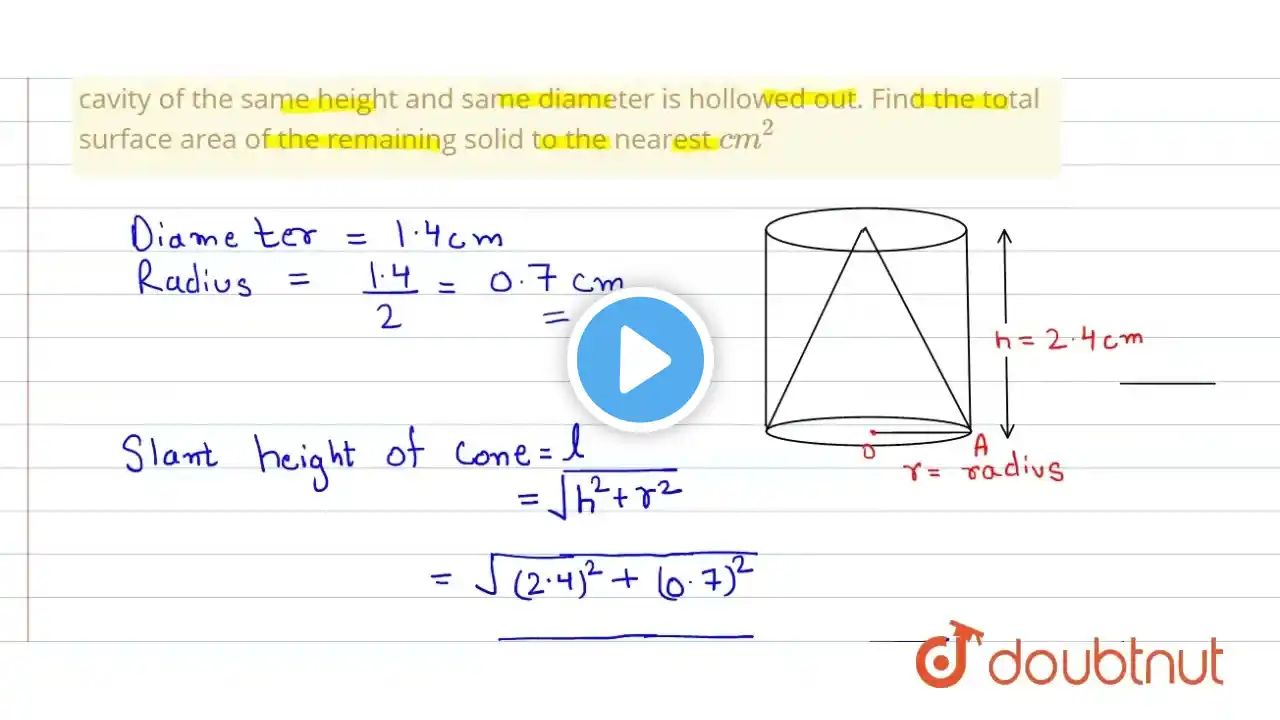 cavity of the same height and same diameter is hollowed out. Find the total
surface area of the remaining solid to the nearest cm²
Diameter = 1.4cm
Radius = 1.4/2 = 0.7 cm
=
h = 2.4cm
Slant height of cone = l
O A
r = radius
= √(h² + r²)
= √((2.4)² + (0.7)²)
doubtnut